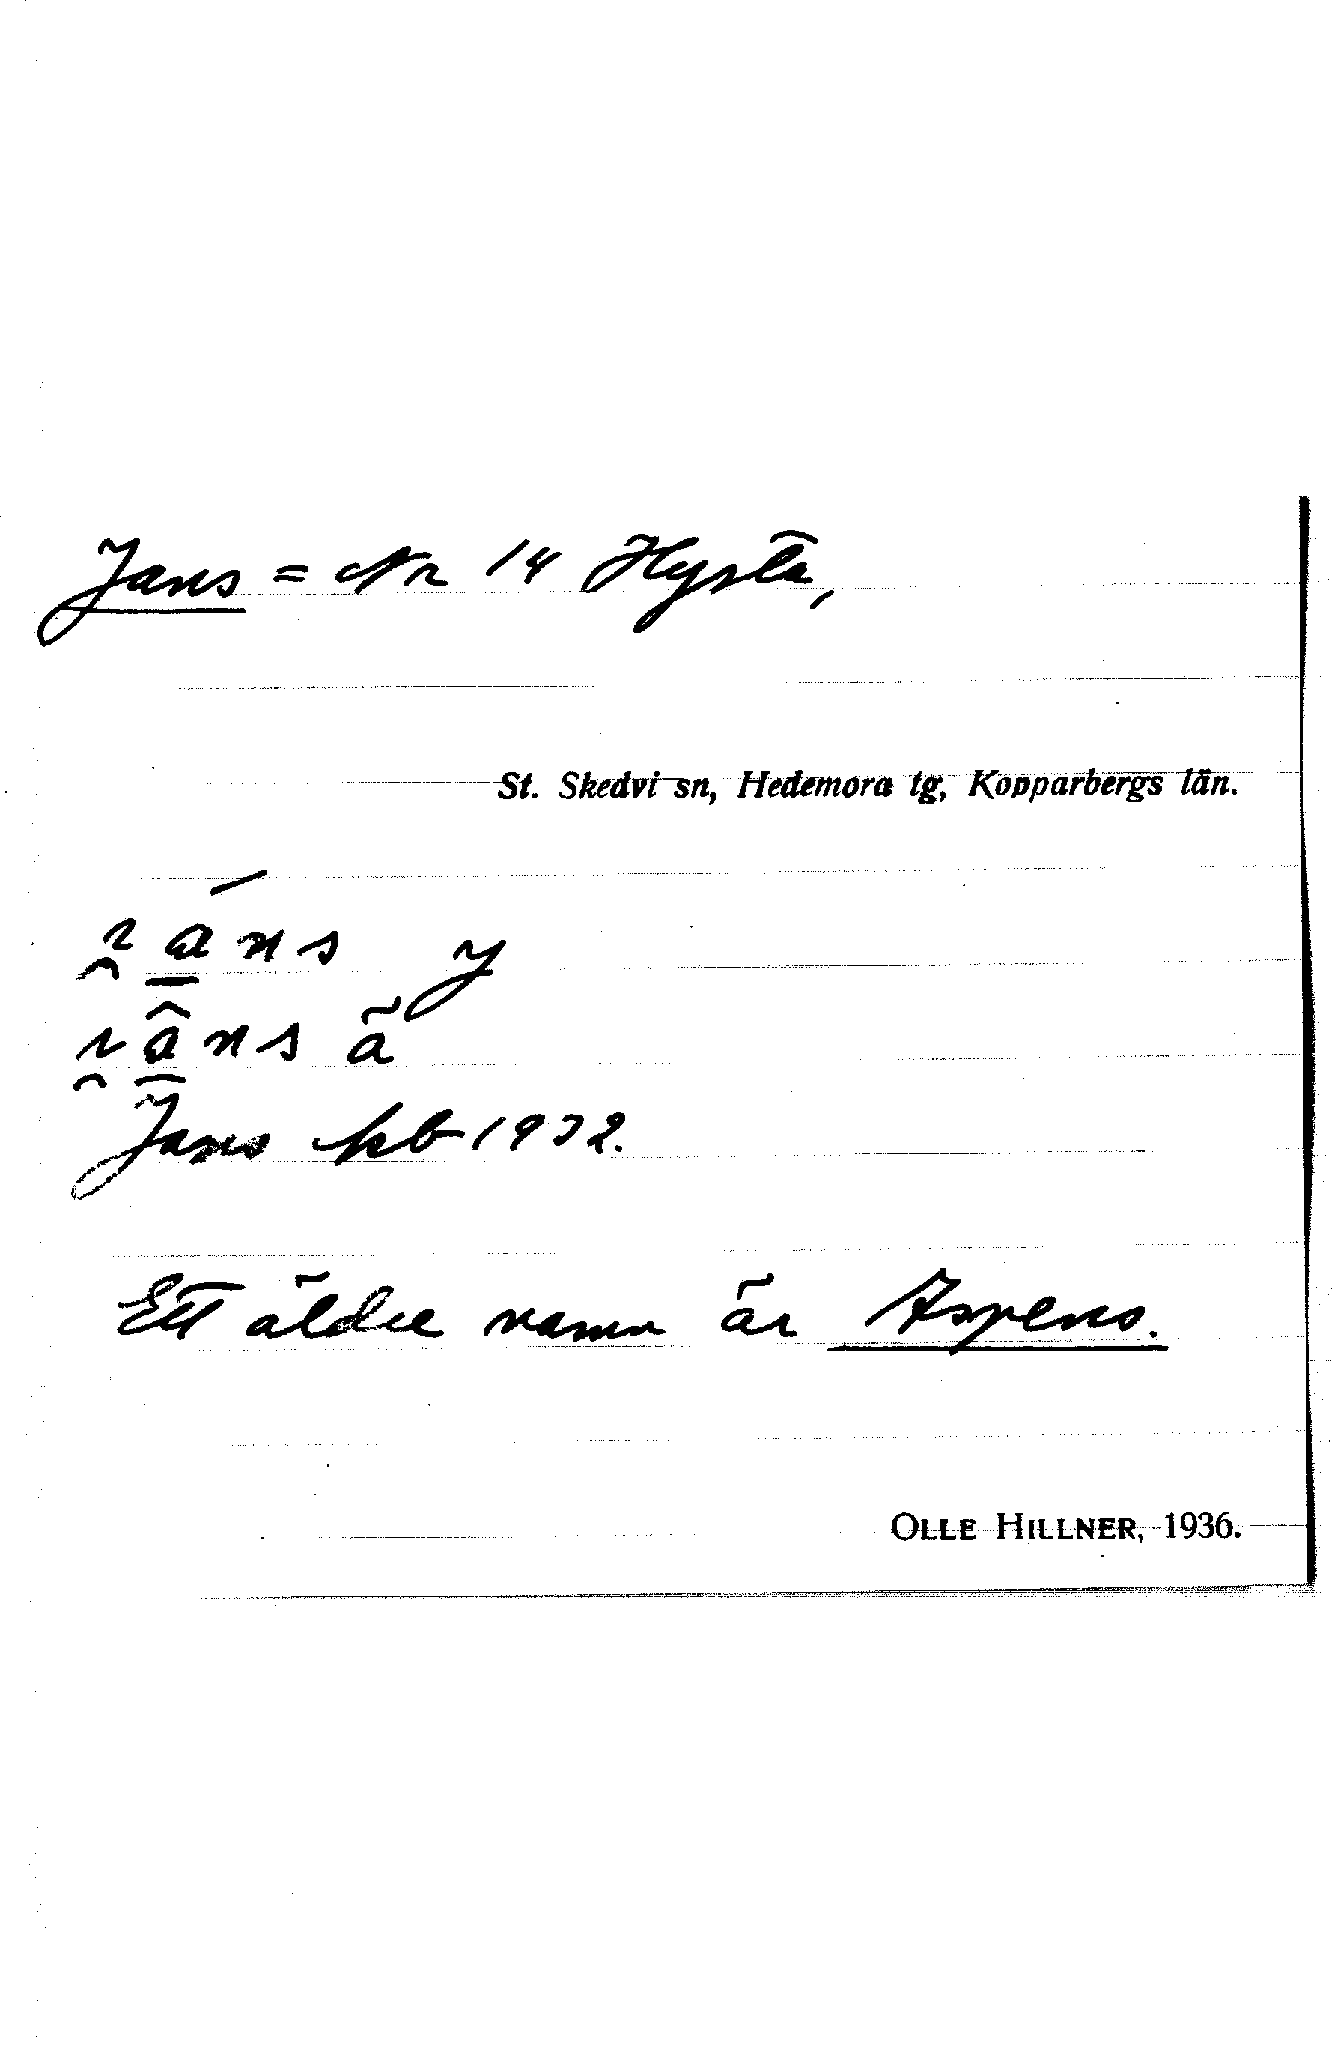 Jans = Nr 14 Hysta,
St. Skedvi sn, Hedemora tg, Kopparbergs län.
ı̯a̱ns y
ı̯â̱ns ä
Jans kb 1932.
Ett äldre namn är Aspens.
OLLE HILLNER, 1936.